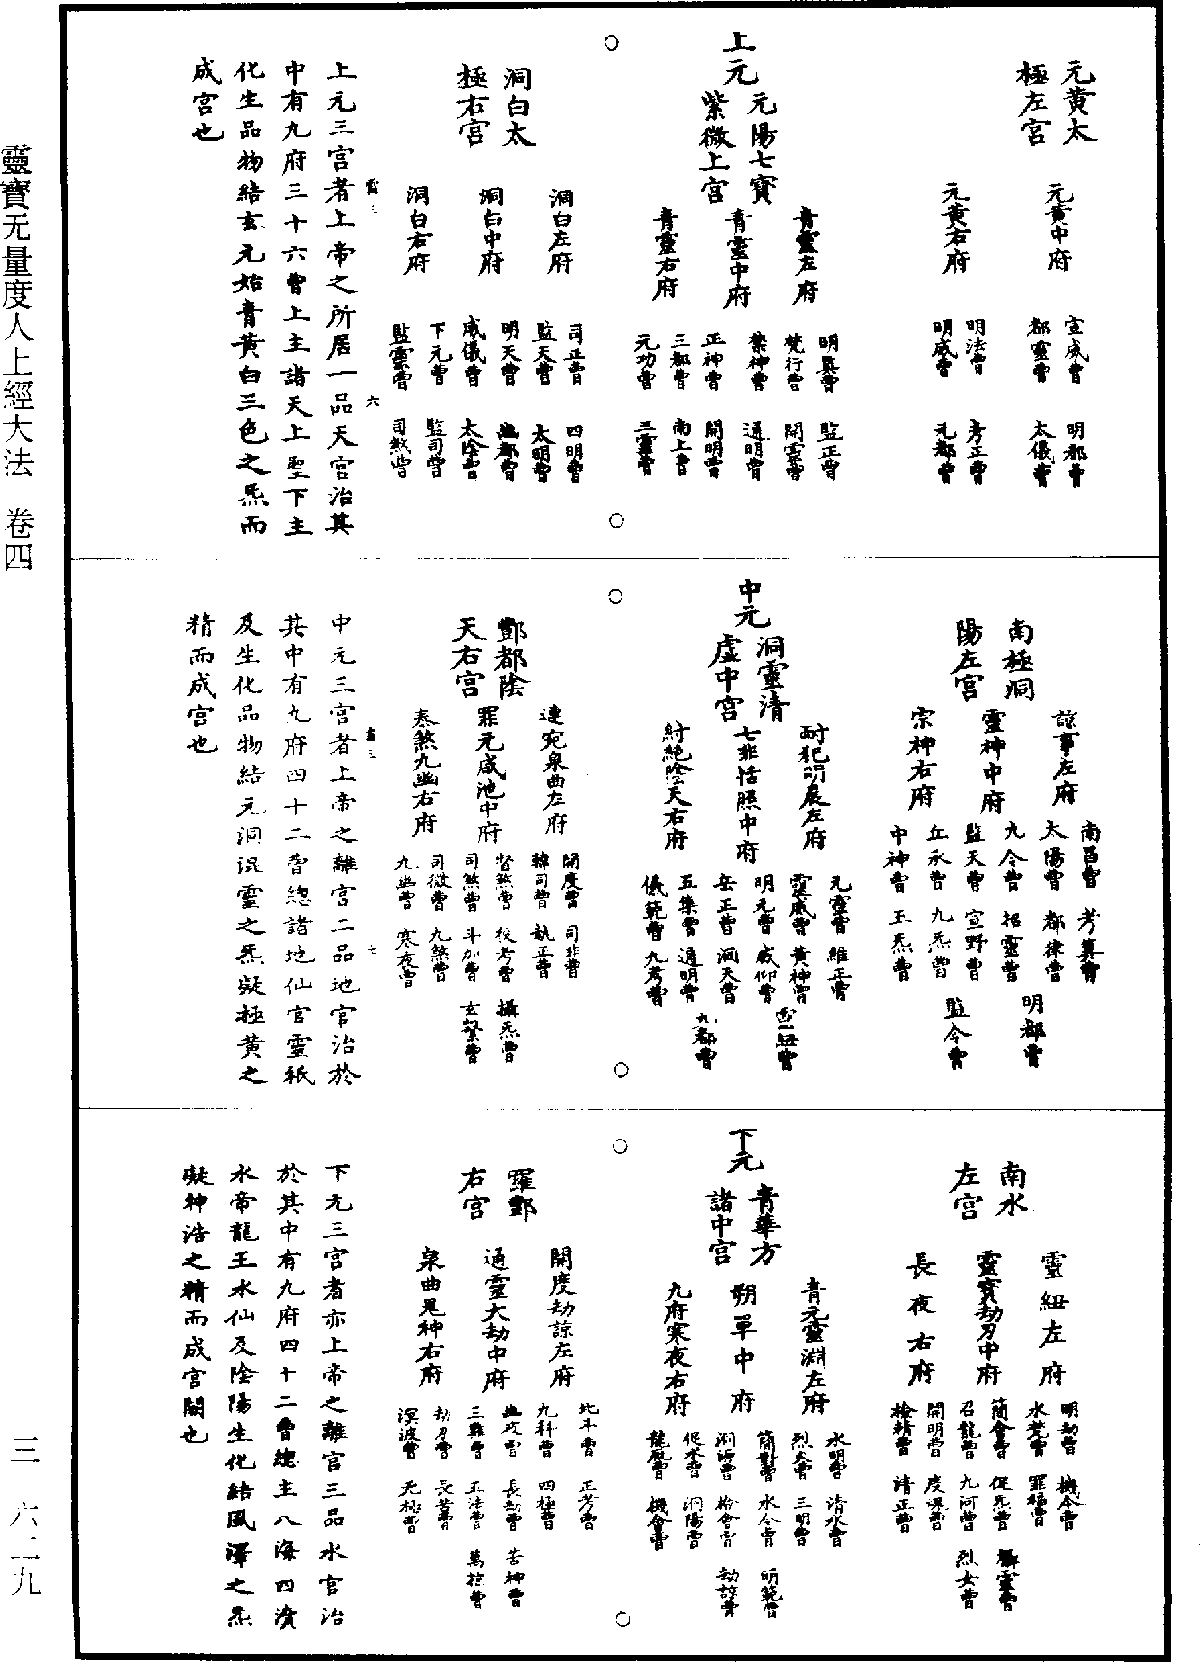 元黃太
極左宮
元黃中府
元黃右府
宣威曹 明都曹
都靈曹 太儀曹
明法曹 考正曹
明威曹 元都曹
上元
元陽七寶
紫微上宮
青靈左府
青靈中府
青靈右府
明真曹 監正曹
梵行曹 開雲曹
禁神曹 通明曹
正神曹 開明曹
三都曹 南上曹
元功曹 三靈曹
洞白太
極右宮
洞白左府
洞白中府
洞白右府
司正曹 四明曹
監天曹 太明曹
明天曹 幽都曹
威儀曹 太陰曹
下元曹 監司曹
監靈曹 司煞曹
上元三宮者上帝之所居一品天宮治其
中有九府三十六曹上主諸天上聖下主
化生品物結玄元始青黃白三色之炁而
成宮也
南極洞
陽左宮
諒事左府
靈神中府
宗神右府
南昌曹 考算曹
太陽曹 都律曹
九令曹 招靈曹
監天曹 宣野曹
丘永曹 九炁曹
中神曹 玉炁曹
明都曹
監令曹
中元
洞靈清
虛中宮
耐犯明晨左府
七非恬照中府
紂絕陰天右府
元靈曹 維正曹
靈威曹 黃神曹
明元曹 威仰曹
岳正曹 洞天曹
五集曹 通明曹
儀範曹 九考曹
九都曹
酆都陰
天右宮
連宛泉曲左府
罪元咸池中府
泰煞九幽右府
開度曹 司非曹
韓司曹 執正曹
督煞曹 校考曹
司煞曹 斗加曹
司微曹 九煞曹
九幽曹 寒夜曹
攝炁曹
玄繫曹
中元三宮者上帝之離宮二品地官治於
其中有九府四十二曹總諸地仙官靈祇
及生化品物結元洞混靈之炁凝極黃之
精而成宮也
南水
左宮
靈紐左府
靈寶劫刃中府
長夜右府
明劫曹 機令曹
水梵曹 罪福曹
簡會曹 促炁曹
召龍曹 九河曹
開明曹 度課曹
檢精曹 清正曹
攝靈曹
烈女曹
下元
青華方
諸中宮
青元靈淵左府
朔單中府
九府寒夜右府
水明曹 清水曹
烈炎曹 三明曹
簡對曹 水令曹
洞海曹 檢會曹
促水曹 洞陽曹
龍威曹 機會曹
明範曹
劫諒曹
羅酆
右宮
開度劫諒左府
通靈大劫中府
泉曲鬼神右府
北斗曹 正考曹
九科曹 四極曹
幽攻曹 長劫曹
三難曹 正法曹
劫刃曹 長苦曹
溟波曹 無極曹
苦神曹
萬掠曹
下元三宮者亦上帝之離宮三品水官治
於其中有九府四十二曹總主八海四瀆
水帝龍王水仙及陰陽生化結風澤之炁
凝神浩之精而成宮闕也
靈寶无量度人上經大法 卷四
三 六二九